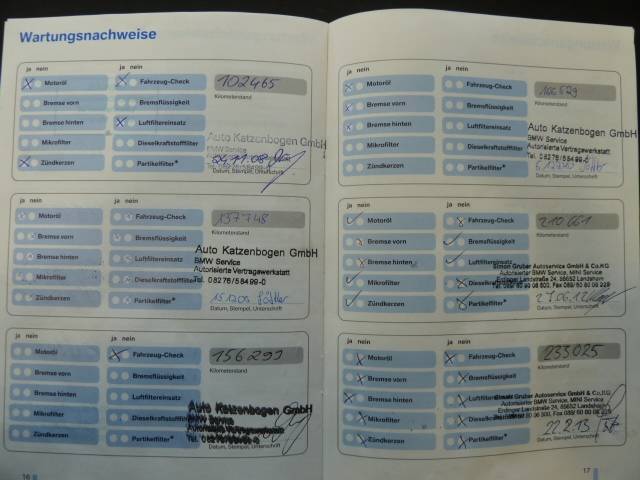 Wartungsnachweise
ja nein ja nein
Motoröl Fahrzeug-Check 102465
Bremse vorn Bremsflüssigkeit Kilometerstand
Bremse hinten Luftfiltereinsatz
Mikrofilter Dieselkraftstofffilter
Zündkerzen Partikelfilter*
Auto Katzenbogen GmbH
BMW Service
Datum, Stempel, Unterschrift
ja nein ja nein
Motoröl Fahrzeug-Check 137748
Bremse vorn Bremsflüssigkeit Kilometerstand
Bremse hinten Luftfiltereinsatz
Mikrofilter Dieselkraftstofffilter
Zündkerzen Partikelfilter*
Auto Katzenbogen GmbH
BMW Service
Autorisierte Vertragswerkstatt
Tel. 08276/58499-0
Datum, Stempel, Unterschrift
ja nein ja nein
Motoröl Fahrzeug-Check 156299
Bremse vorn Bremsflüssigkeit Kilometerstand
Bremse hinten Luftfiltereinsatz
Mikrofilter Dieselkraftstofffilter
Zündkerzen Partikelfilter*
Auto Katzenbogen GmbH
BMW Service
16
ja nein ja nein
Motoröl Fahrzeug-Check
Bremse vorn Bremsflüssigkeit Kilometerstand
Bremse hinten Luftfiltereinsatz
Mikrofilter Dieselkraftstofffilter
Zündkerzen Partikelfilter*
Auto Katzenbogen GmbH
BMW Service
Autorisierte Vertragswerkstatt
Tel. 08276/58499-0
Datum, Stempel, Unterschrift
ja nein ja nein
Motoröl Fahrzeug-Check 210661
Bremse vorn Bremsflüssigkeit Kilometerstand
Bremse hinten Luftfiltereinsatz
Mikrofilter
Zündkerzen Partikelfilter*
Simon Gruber Autoservice GmbH & Co.KG
Autorisierter BMW Service, MINI Service
Erdinger Landstraße 24, 85652 Landsham
27.06.12
Datum, Stempel, Unterschrift
ja nein ja nein
Motoröl Fahrzeug-Check 233025
Bremse vorn Bremsflüssigkeit Kilometerstand
Bremse hinten Luftfiltereinsatz
Mikrofilter
Zündkerzen Partikelfilter*
Simon Gruber Autoservice GmbH & Co.KG
Autorisierter BMW Service, MINI Service
Erdinger Landstraße 24, 85652 Landsham
22.2.13
Datum, Stempel, Unterschrift
17